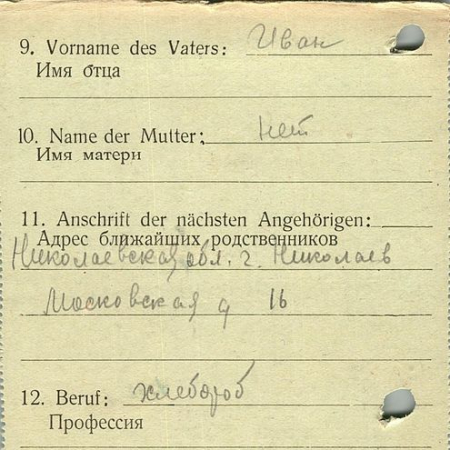 9. Vorname des Vaters: Иван
Имя отца
10. Name der Mutter: нет
Имя матери
11. Anschrift der nächsten Angehörigen:
Адрес ближайших родственников
Николаевская обл. г. Николаев
Московская д 16
12. Beruf: хлебороб
Профессия